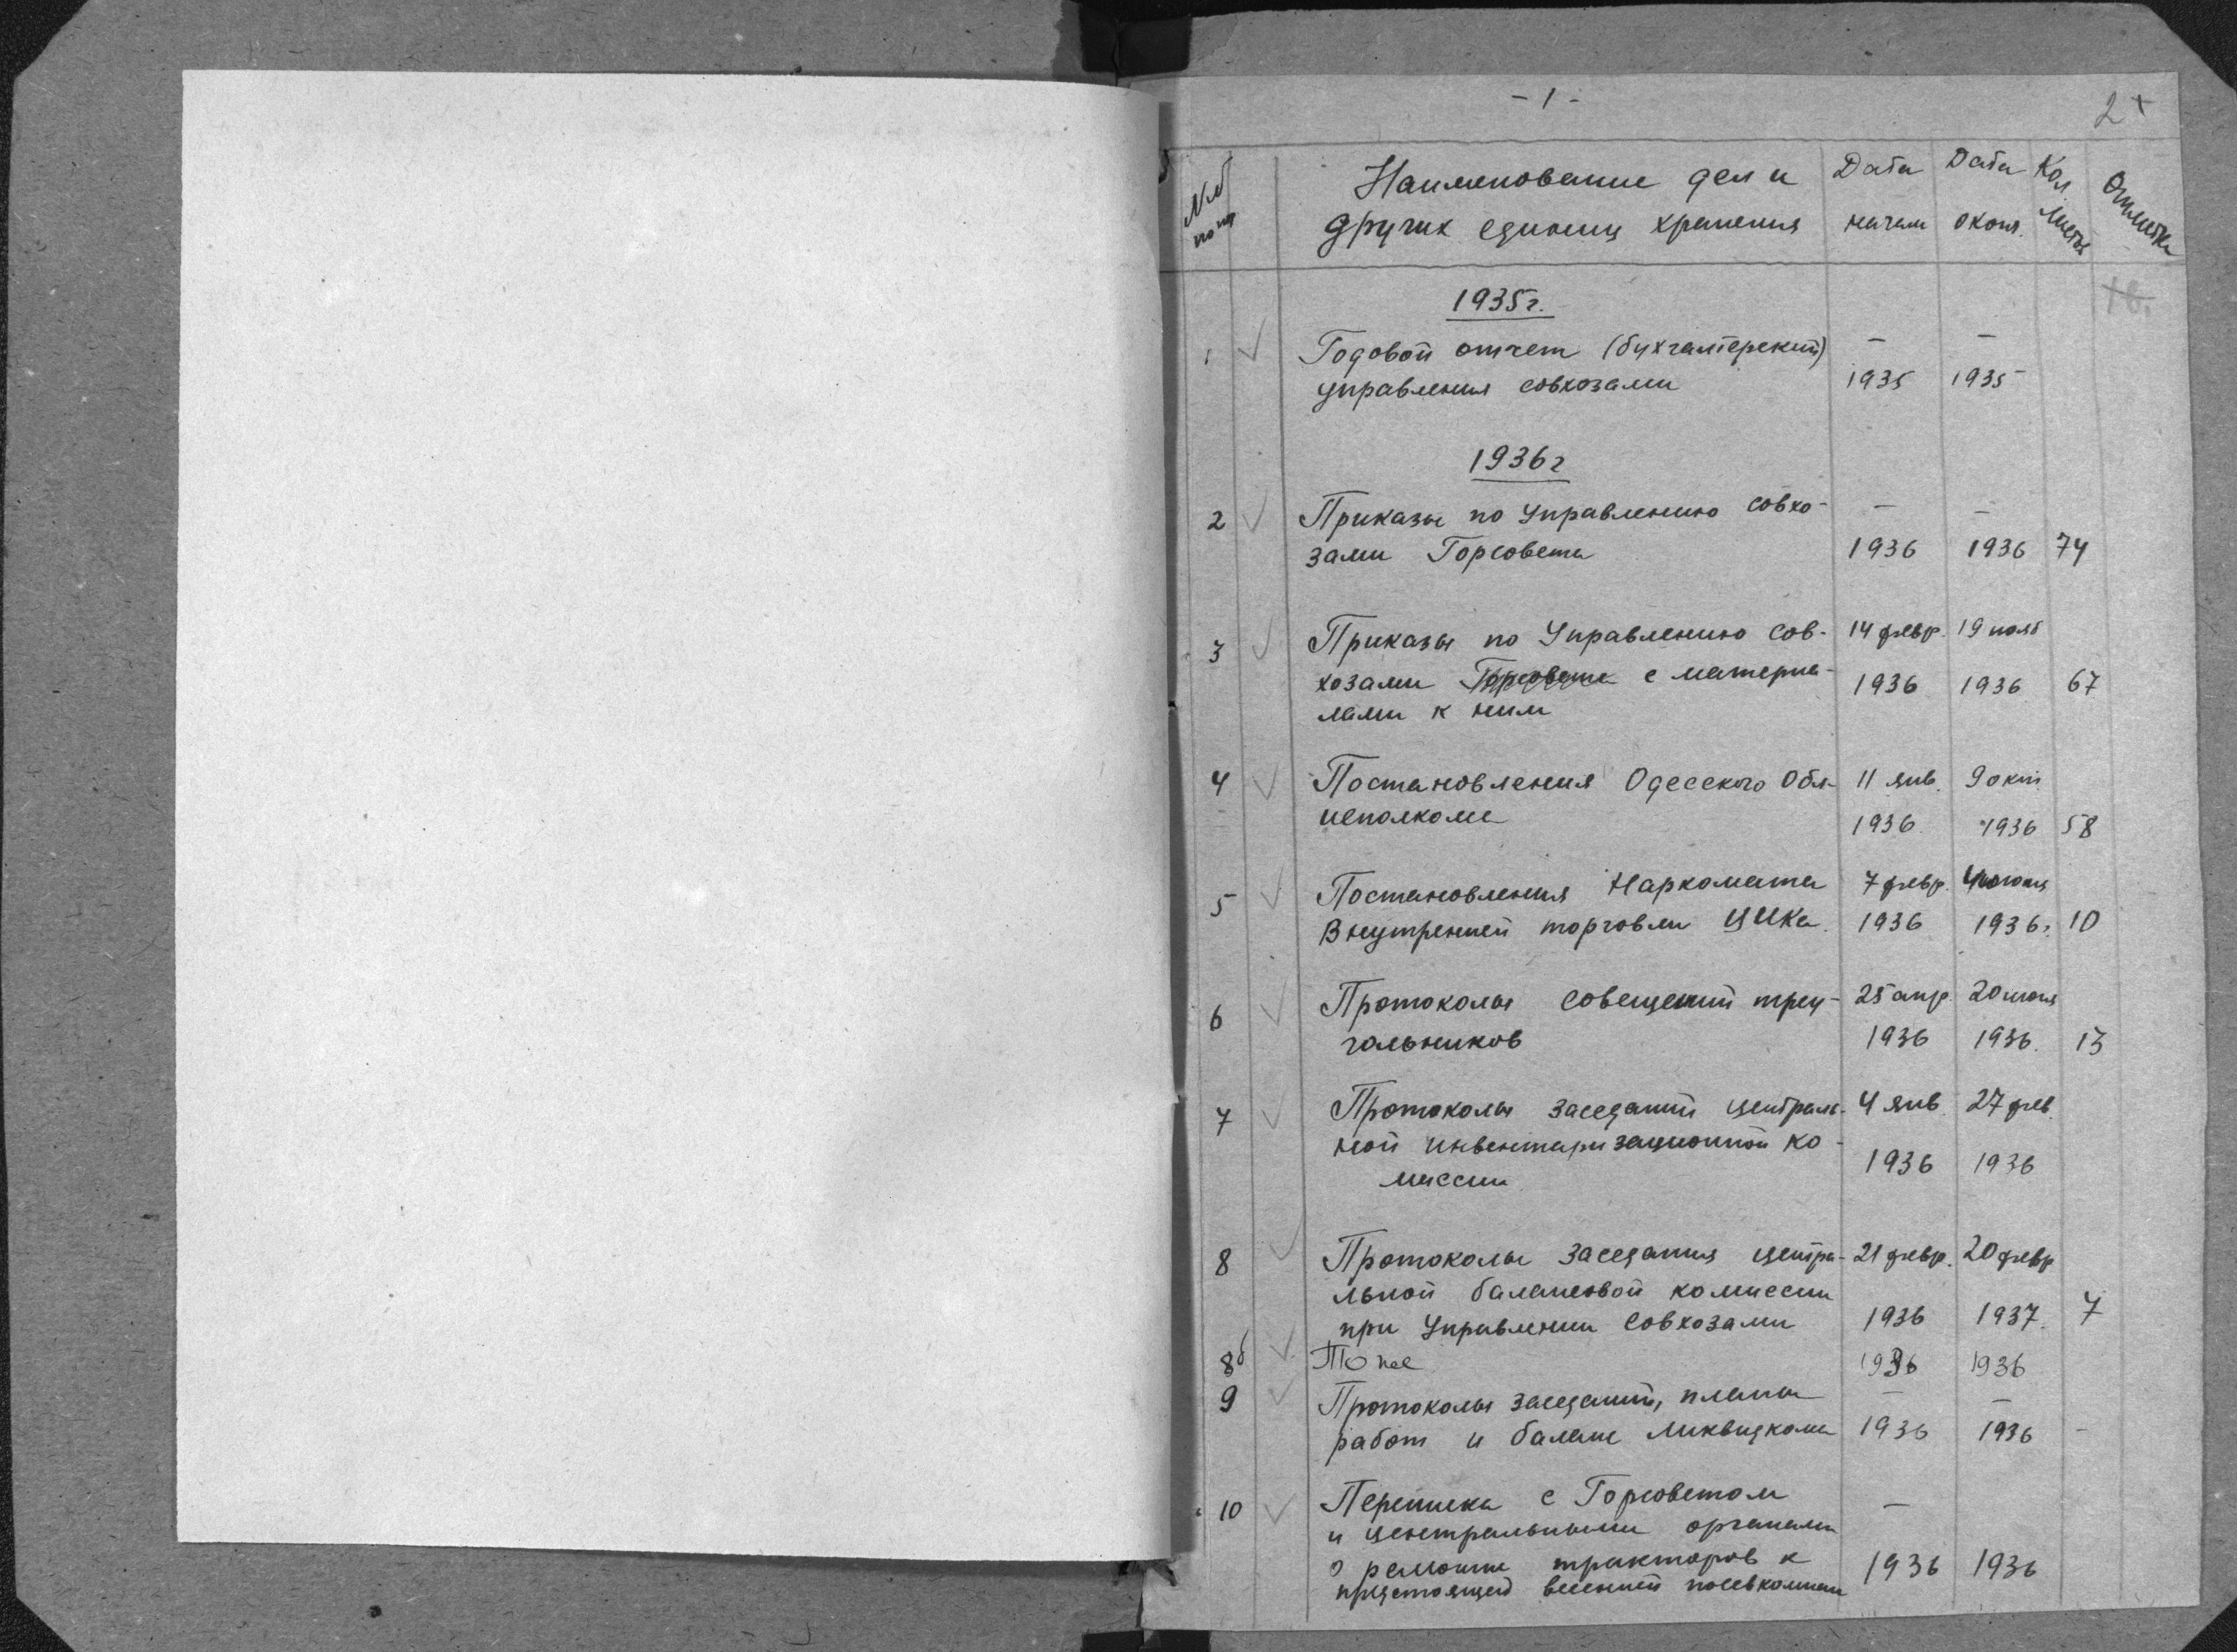 - 1 -
2
№№ по пор
Наименование дел и других единиц хранения
Дата начала
Дата оконч.
Кол листов
Отметка
1935г.
1 Годовой отчет (бухгалтерский) — —
управления совхозами 1935 1935
1936г
2 Приказы по управлению совхо- — —
зами Горсовета 1936 1936 74
3 Приказы по Управлению сов- 14 февр. 19 нояб
хозами Горсовета с материа- 1936 1936 67
лами к ним
4 Постановления Одесского Обл- 11 янв. 9 окт.
исполкома 1936. 1936 58
5 Постановления Наркомата 7 февр.
Внутренней торговли ЦИКа. 1936 1936г. 10
6 Протоколы совещений треу- 25 апр. 20 июня
гольников 1936 1936. 13
7 Протоколы заседаний централь- 4 янв. 27 фев.
ной инвентаризационной ко- 1936 1936
миссии
8 Протоколы заседания центра- 21 февр. 20 февр
льной балансовой комиссии
при Управлении Совхозами 1936 1937. 7
8б То же 1936 1936
9 Протоколы заседаний, планы — —
работ и баланс Ликвидкома 1936 1936 -
10 Переписка с Горсоветом —
и центральными органами
о ремонте тракторов к 1936 1936
предстоящей весенней посевкомпан